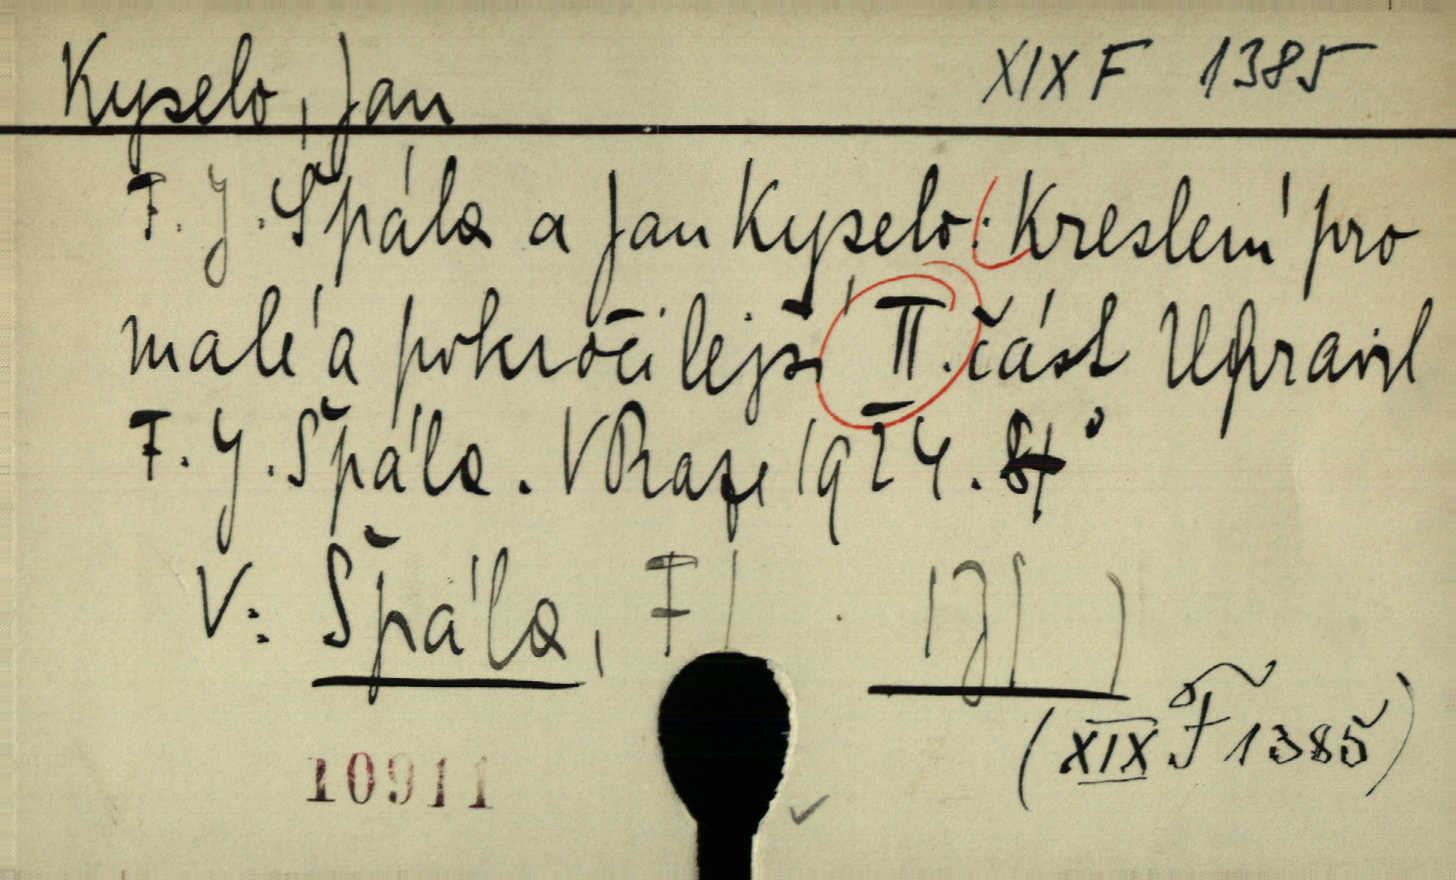 Kyselo, Jan XIX F 1385
F. J. Špála a Jan Kyselo: Kreslení pro
malé a pokročilejší II. část Upravil
F. J. Špála. V Praze 1924. 8°
V: Špála, F
10911 (XIX F 1385)